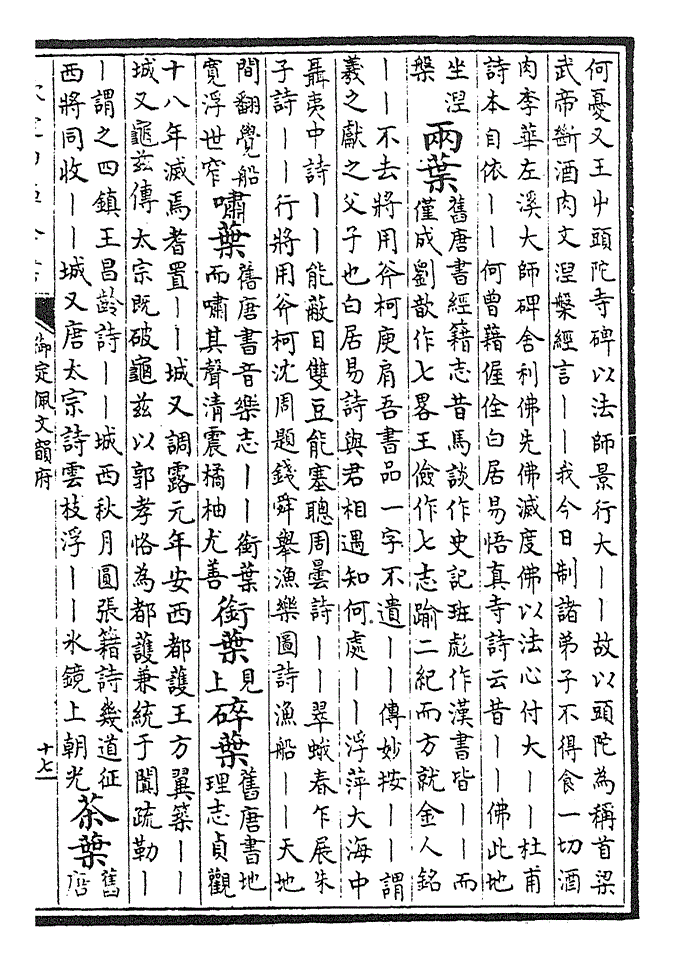 何憂又王屮頭陀寺碑以法師景行大丨丨故以頭陀為稱首梁
武帝斷酒肉文涅槃經言丨丨我今日制諸弟子不得食一切酒
肉李華左溪大師碑舍利佛先佛滅度佛以法心付大丨丨杜甫
詩本自依丨丨何曾藉偓佺白居易悟真寺詩云昔丨丨佛此地
坐涅
槃
兩葉
舊唐書經籍志昔馬談作史記班彪作漢書皆丨丨而
僅成劉歆作七畧王儉作七志踰二紀而方就金人銘
丨丨不去將用斧柯庾肩吾書品一字不遺丨丨傳妙按丨丨謂
羲之獻之父子也白居易詩與君相遇知何處丨丨浮萍大海中
聶夷中詩丨丨能蔽目雙豆能塞聰周曇詩丨丨翠蛾春乍展朱
子詩丨丨行將用斧柯沈周題錢舜舉漁樂圖詩漁船丨丨天地
間翻覺船
寬浮世窄
嘯葉
舊唐書音樂志丨丨銜葉
而嘯其聲清震橘柚尤善
銜葉
見
上
碎葉
舊唐書地
理志貞觀
十八年滅焉耆置丨丨城又調露元年安西都護王方翼築丨丨
城又龜兹傳太宗既破龜兹以郭孝恪為都護兼統于闐疏勒丨
丨謂之四鎮王昌齡詩丨丨城西秋月圓張籍詩幾道征
西將同收丨丨城又唐太宗詩雲枝浮丨丨氷鏡上朝光
茶葉
舊
唐
御定佩文韻府
十七